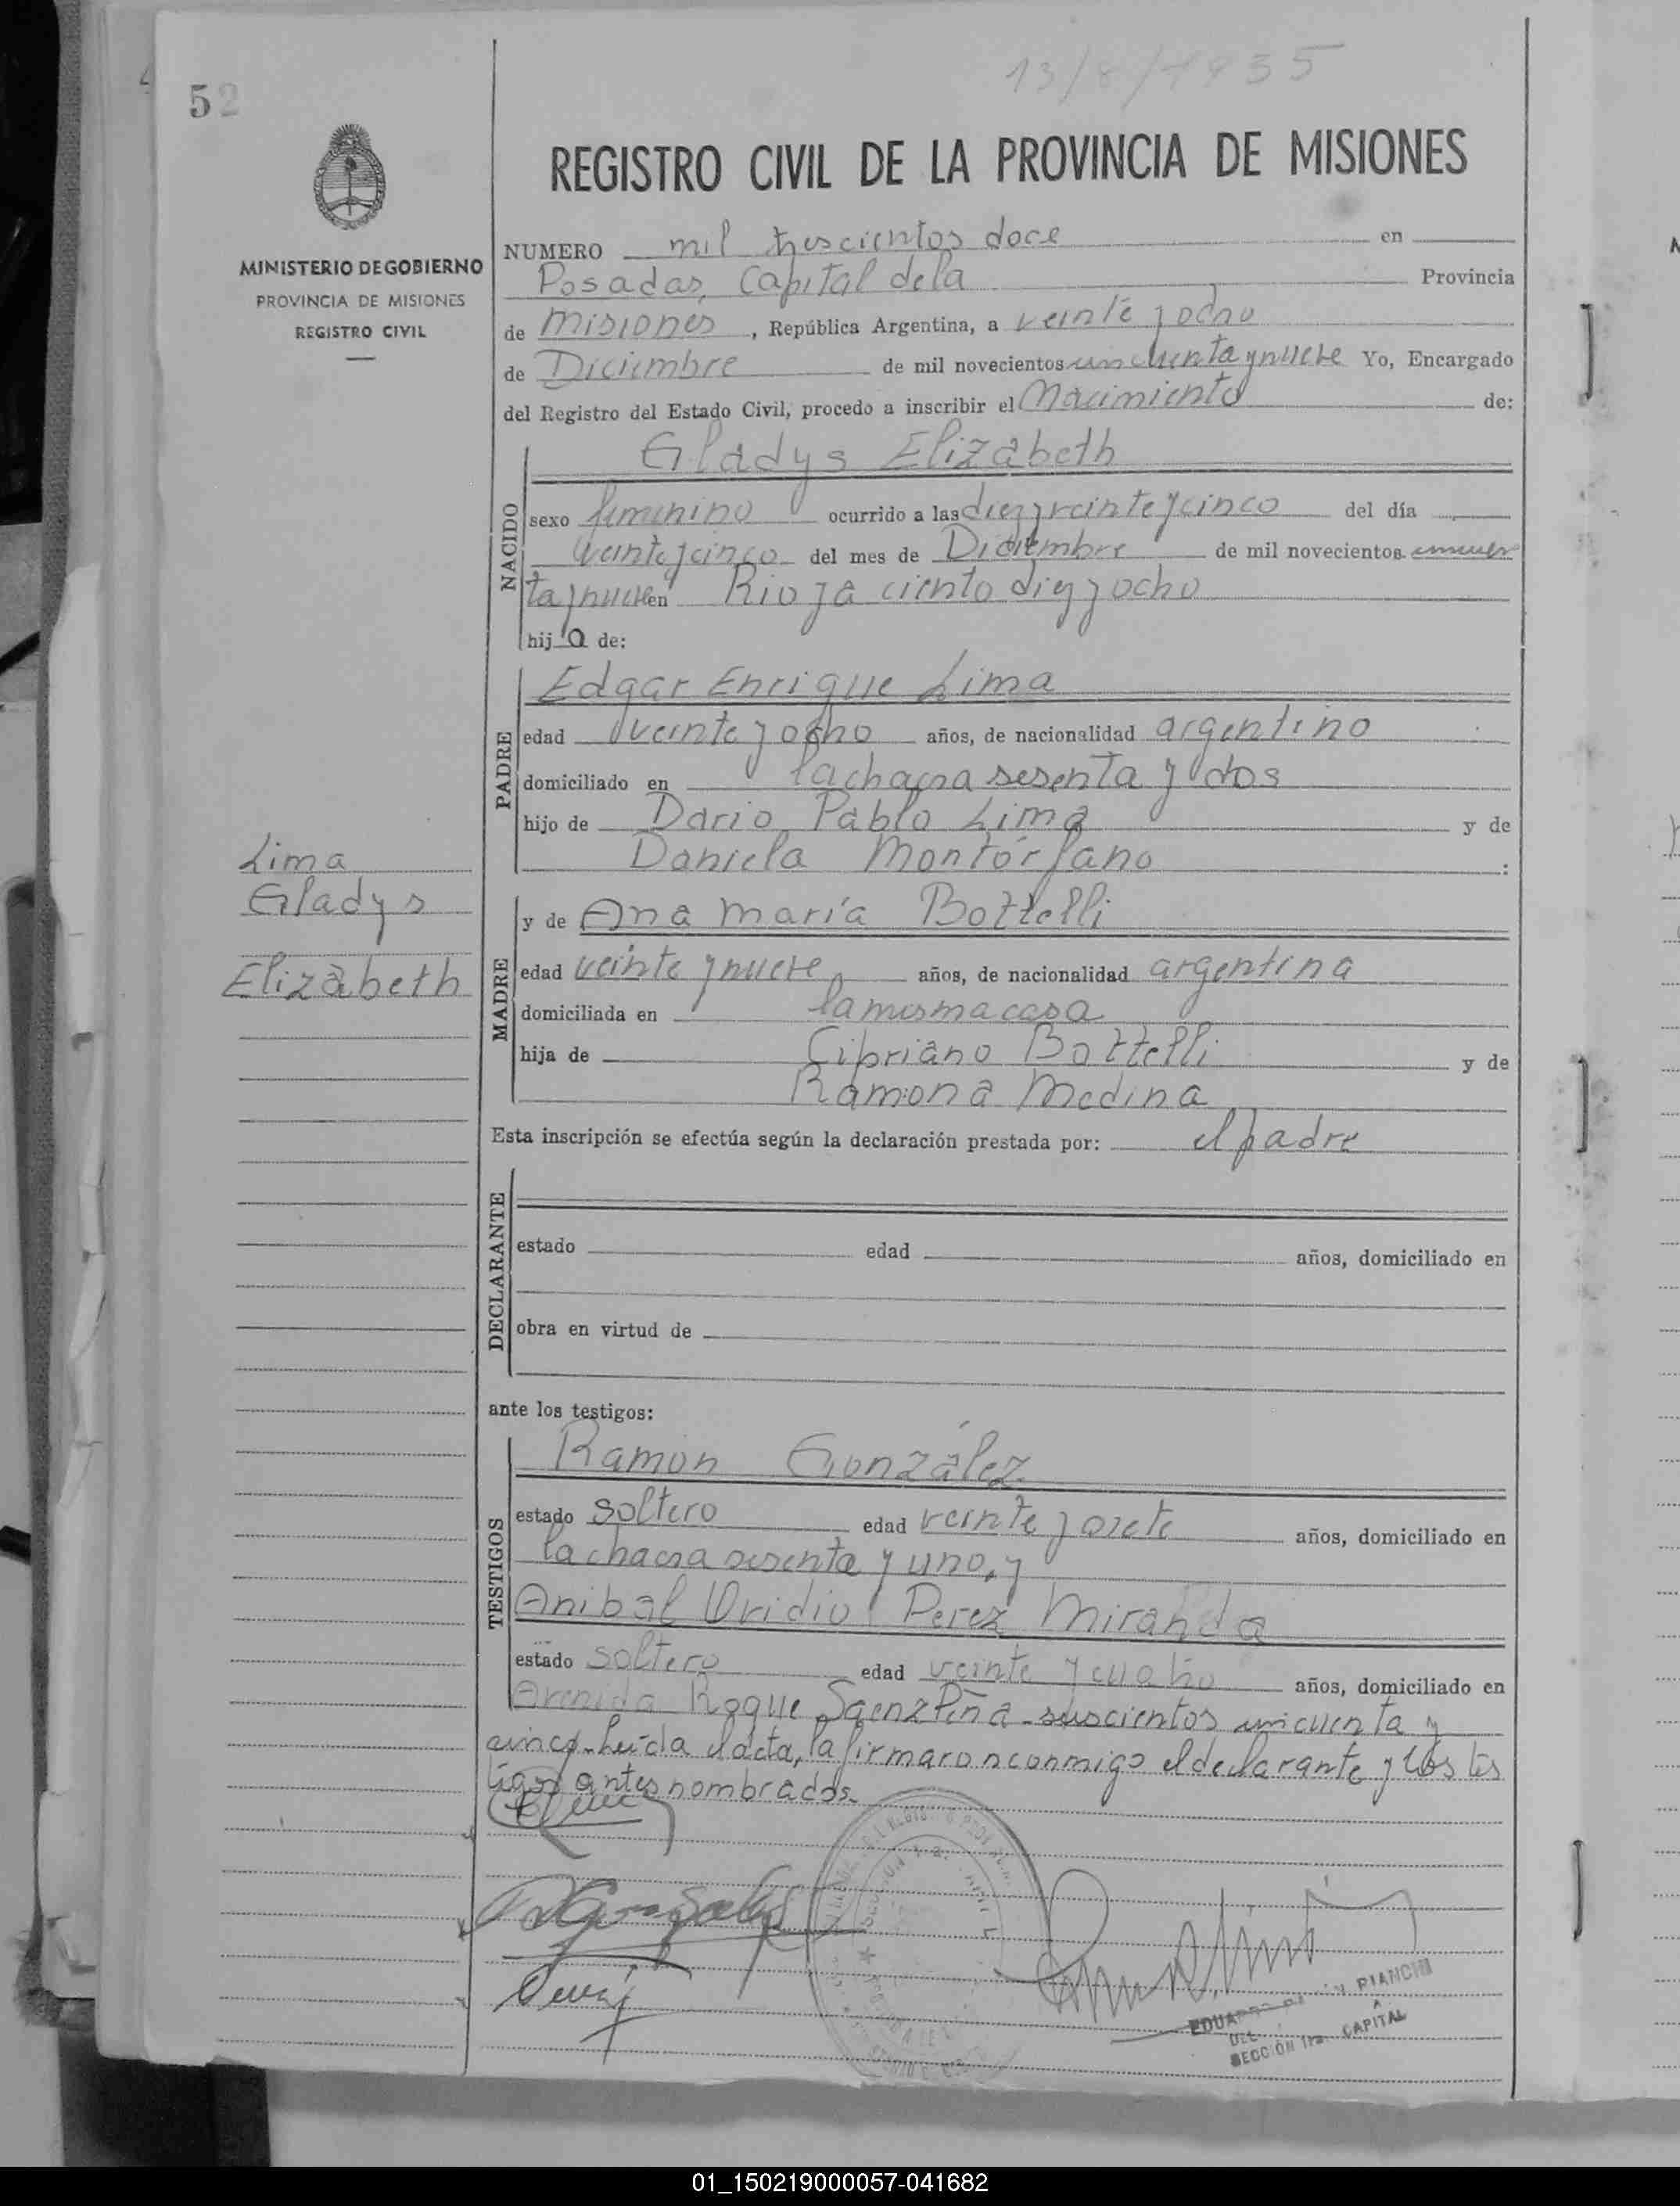 13/8/1935
52
REGISTRO CIVIL DE LA PROVINCIA DE MISIONES
MINISTERIO DE GOBIERNO
PROVINCIA DE MISIONES
REGISTRO CIVIL
NUMERO mil trescientos doce en
Posadas, Capital de la Provincia
de Misiones, República Argentina, a veinte y ocho
de Diciembre de mil novecientos cincuenta y nueve Yo, Encargado
del Registro del Estado Civil, procedo a inscribir el Nacimiento de:
NACIDO
Gladys Elizabeth
sexo femenino ocurrido a las diez y veinte y cinco del día
veinte y cinco del mes de Diciembre de mil novecientos cincuen
ta y nueve en Rioja ciento diez y ocho
hija de:
PADRE
Edgar Enrique Lima
edad veinte y ocho años, de nacionalidad argentino
domiciliado en la chacra sesenta y dos
hijo de Dario Pablo Lima y de
Daniela Montórfano :
Lima
Gladys
Elizabeth
MADRE
y de Ana María Bottelli
edad veinte y nueve años, de nacionalidad argentina
domiciliada en la misma casa
hija de Cipriano Bottelli y de
Ramona Medina
Esta inscripción se efectúa según la declaración prestada por: el padre
DECLARANTE
estado edad años, domiciliado en
obra en virtud de
ante los testigos:
TESTIGOS
Ramón González
estado soltero edad veinte y siete años, domiciliado en
la chacra sesenta y uno, y
Anibal Ovidio Perez Miranda
estado soltero edad veinte y cuatro años, domiciliado en
Avenida Roque Saenz Peña seiscientos cincuenta y
cinco. Leída el acta, la firmaron conmigo el declarante y los tes
tigos antes nombrados.
RGonzalez
PIANCHI
SECCION 1ra. CAPITAL
01_150219000057-041682